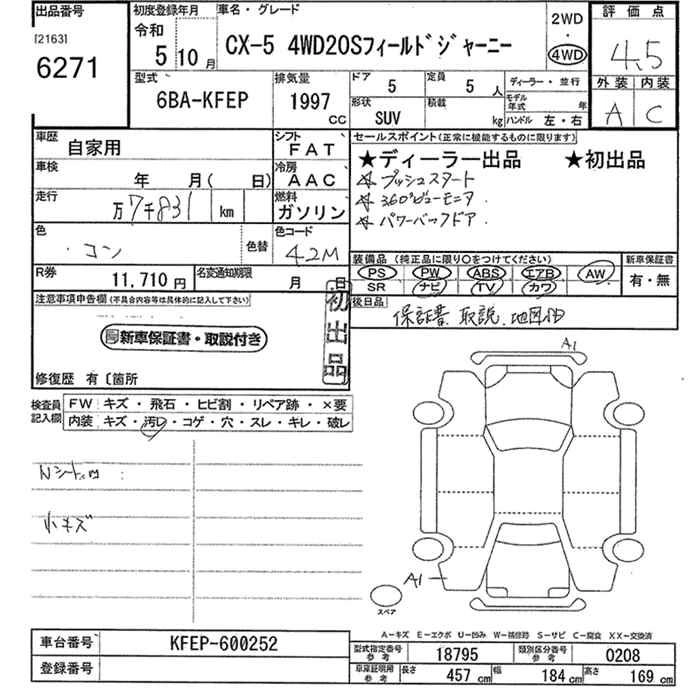 出品番号
[2163]
6271
初度登録年月
令和
5 10月
車名・グレード
CX-5 4WD20Sフィールドジャーニー
2WD
・
4WD
評価点
4.5
外装 内装
A C
型式
6BA-KFEP
排気量
1997
CC
ドア
5
定員
5 人
形状
SUV
積載
kg
ディーラー・並行
モデル年式 年
ハンドル 左・右
車歴
自家用
シフト
FAT
車検
年 月( 日)
冷房
AAC
走行
万7千831 km
燃料
ガソリン
色
コン
色替
色コード
42M
R券
11,710 円
名変通知期限
月 日
セールスポイント(正常に機能するものに限ります)
★ディーラー出品 ★初出品
☆プッシュスタート
☆360°ビューモニタ
☆パワーバックドア
装備品(純正品に限り○をつけてください)
PS PW ABS エアB AW
SR ナビ TV カワ
新車保証書
有・無
後日品
保証書、取説、地図印
注意事項申告欄(不具合内容等は具体的に記入して下さい)
新車保証書・取説付き
初出品
修復歴 有〔箇所
検査員記入欄
FW キズ・飛石・ヒビ割・リペア跡・×要
内装 キズ・汚レ・コゲ・穴・スレ・キレ・破レ
小キズ
A1
A1
スペア
A-キズ E-エクボ U-凹み W-補修跡 S-サビ C-腐食 XX-交換済
車台番号
KFEP-600252
登録番号
型式指定番号 参考
18795
類別区分番号 参考
0208
車庫証明用 参考
長さ 457 cm
幅 184 cm
高さ 169 cm